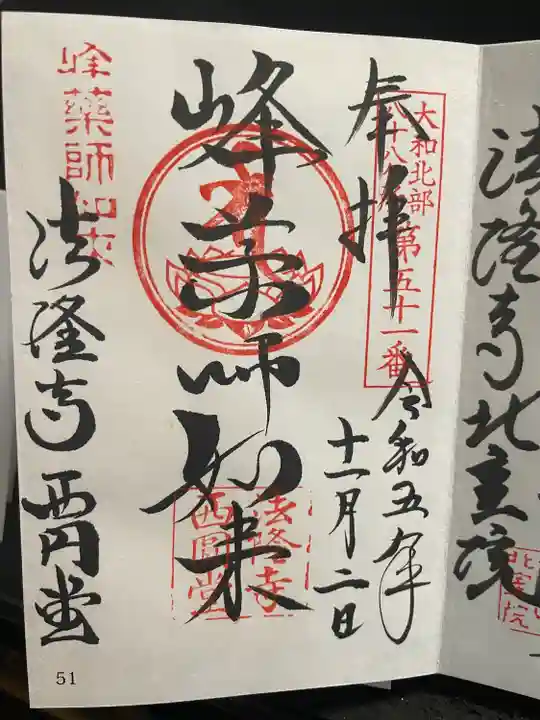 奉拝
大和北部
八十八ヶ所
第五十一番
令和五年
十一月二日
峰薬師如来
法隆寺
西圓堂
峰薬師如来
法隆寺西円堂
51
法隆寺北室院
北室院